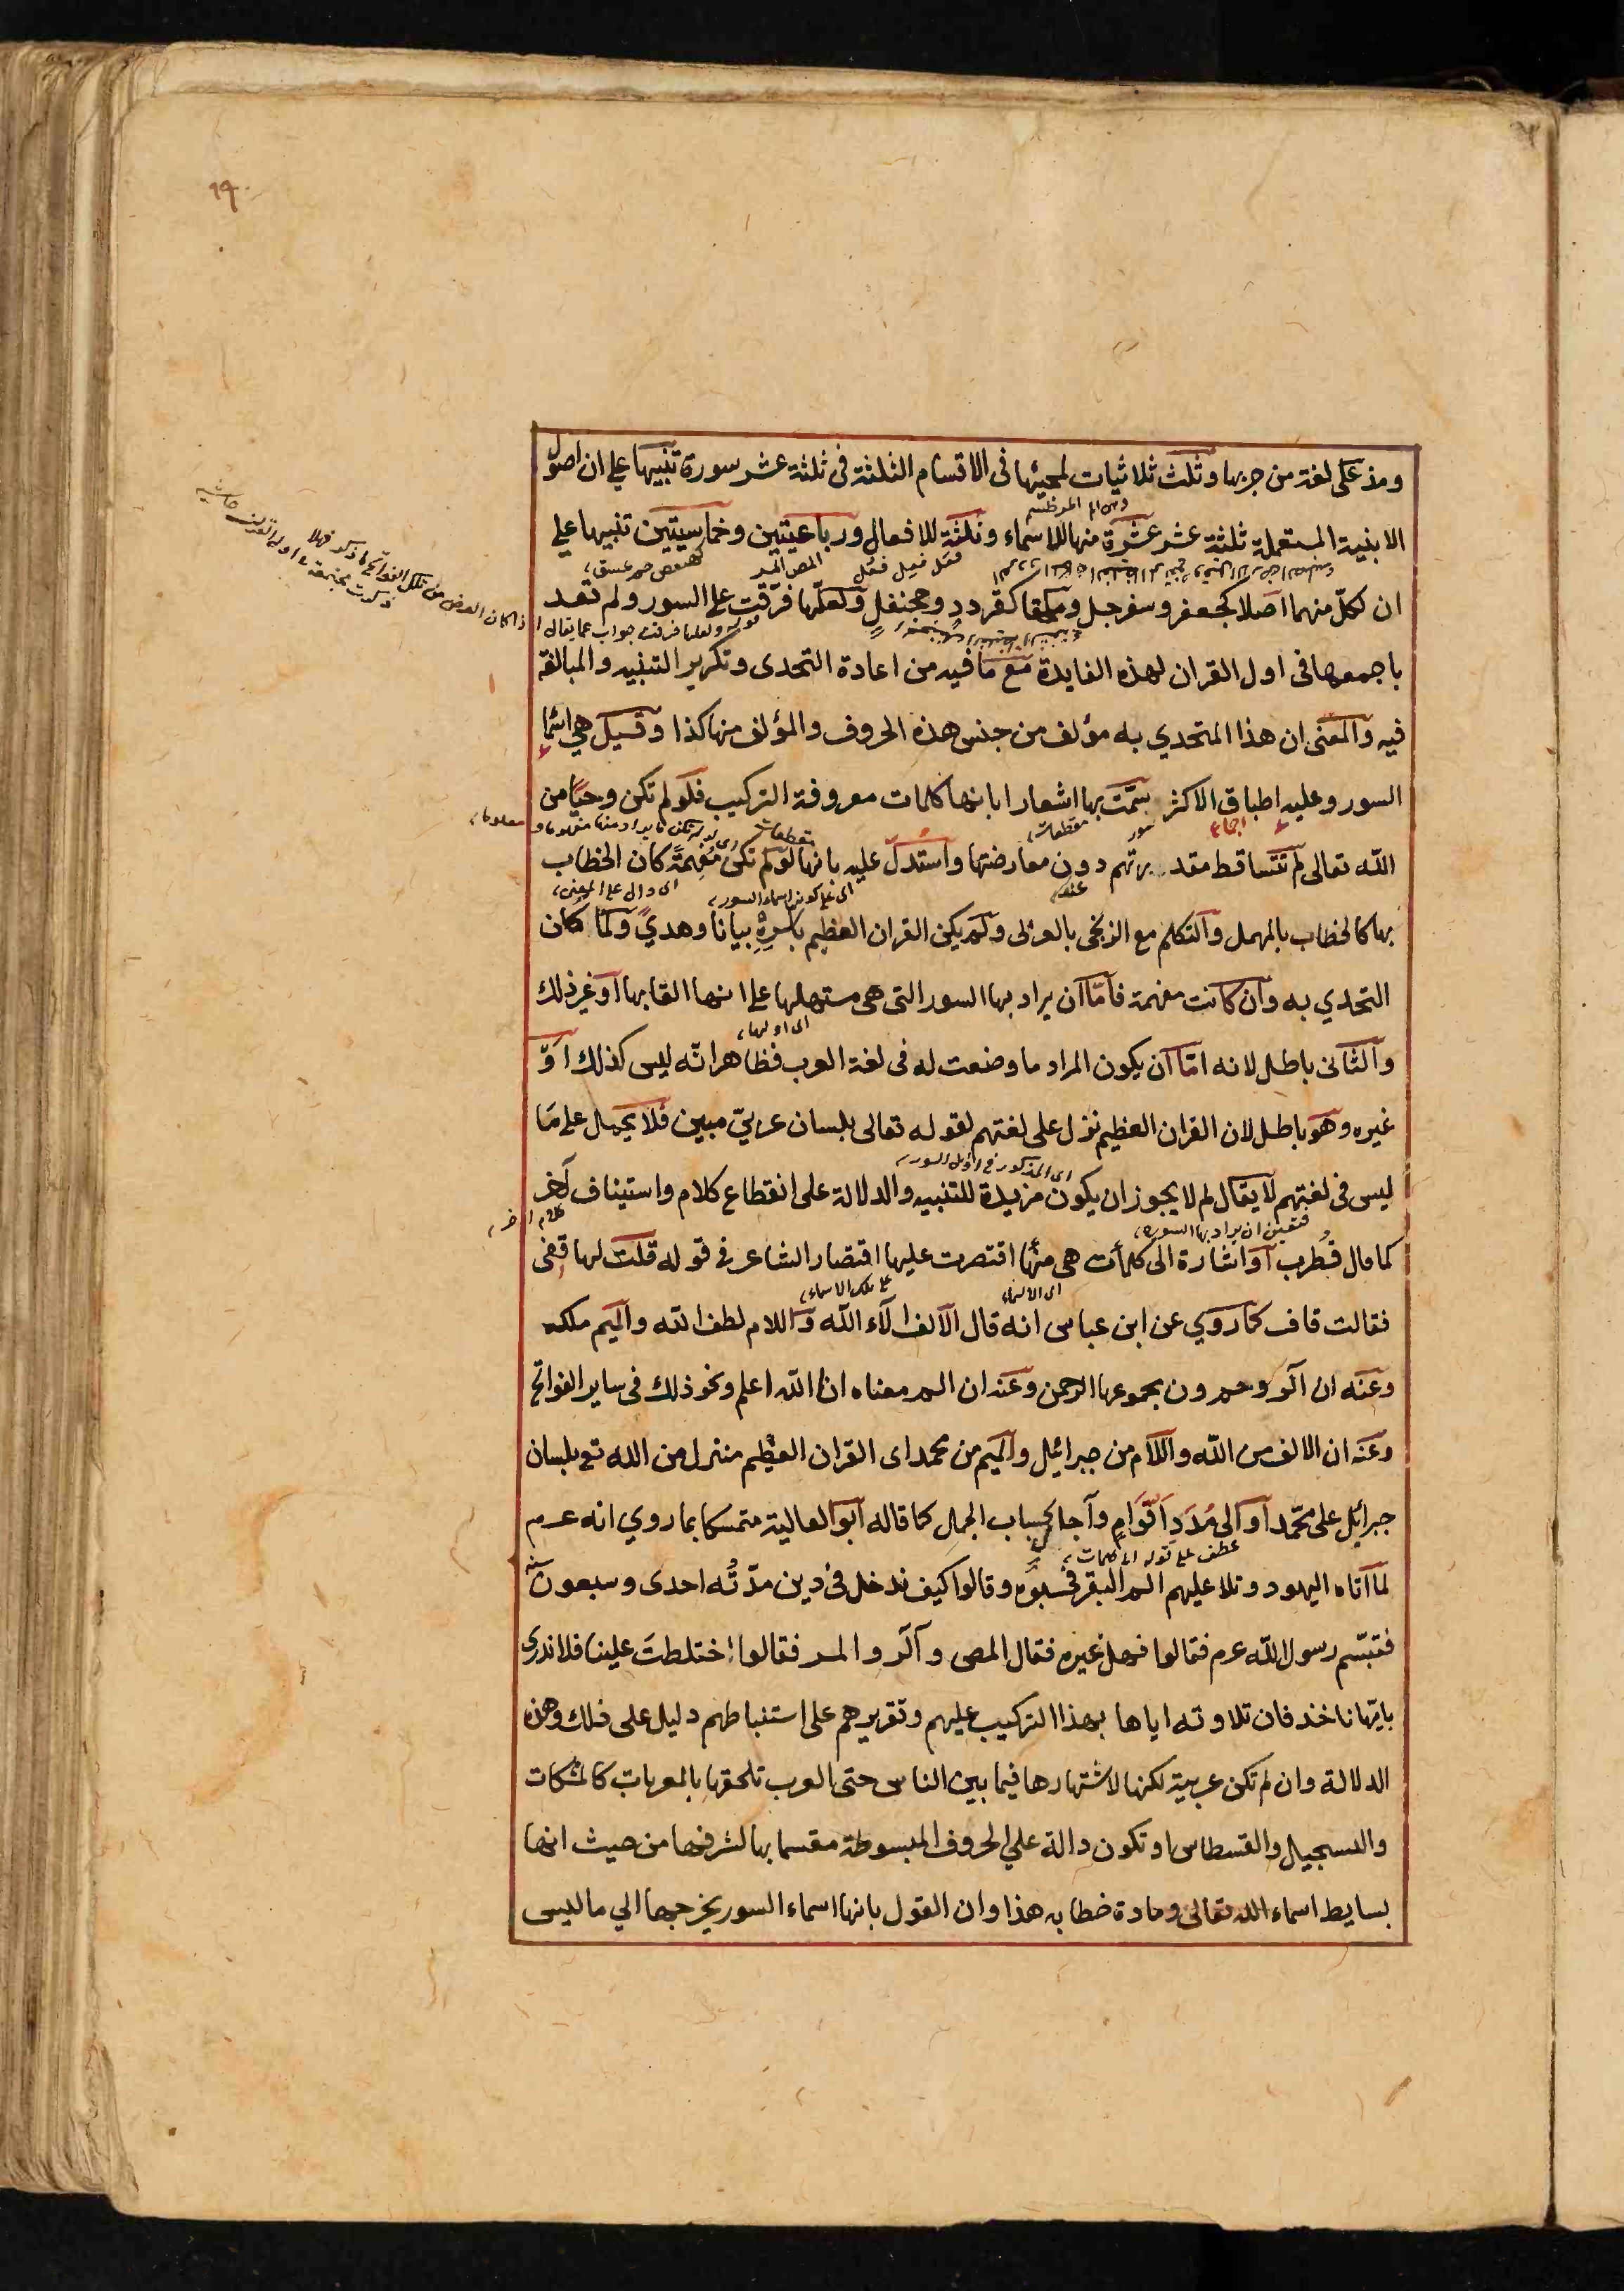 ومذ على لغة من جربها وثلث ثلاثيات لمجيئها فى الاقسام الثلثة فى ثلثة عشر سورة تنبيها على ان اصول
الابنية المستعملة ثلثة عشر عشرة منها للاسماء وثلثة للافعال ورباعيتين وخماسيتين تنبيها على
فعَل فعِل فعُل
المص المر
كهيعص حمعسق
ان لكلّ منهما اصلا كجعفر وسفرجل وملحقا كقردد وجحنفل ولعلّها فرّقت على السور ولم تعد
قوله ولعلها فرقت جواب عما يقال
اذا كان الغرض من تلك الفواتح ما ذكر فهلا
ذكرت مجتمعة اول القران
باجمعها فى اول القران لهذه الفايدة مع ما فيه من اعادة التحدى وتكرير التنبيه والمبالغة
فيه والمعنى ان هذا المتحدي به مؤلف من جنس هذه الحروف والمؤلف منها كذا وقيل هي اسماء
السور وعليه اطباق الاكثر سمّت بها اشعارا بانها كلمات معروفة التركيب فلو لم تكن وحيًا من
الله تعالى لم تتساقط مقدرتهم دون معارضتها واستدلّ عليه بانها لو لم تكن مُفهِمةً كان الخطاب
اى على كونها اسماء السور
اى دال على المعنى
بها كالخطاب بالمهمل والتكلم مع الزنجى بالعربى ولم يكن القران العظيم باسره بيانا وهدىً ولما كان
التحدي به وان كانت مفهمة فامّا ان يراد بها السور التى هى مستهلها على انها القابها او غير ذلك
اى اولها
والثانى باطل لانه امّا ان يكون المراد ما وضعت له فى لغة العرب فظاهر انّه ليس كذلك او
غيره وهو باطل لان القران العظيم نزل على لغتهم لقوله تعالى بلسان عربيّ مبين فلا يحمل على ما
اى المذكور فى اوّل السور
ليس فى لغتهم لا يقال لم لا يجوز ان يكون مزيدة للتنبيه والدلالة على انقطاع كلام واستيناف آخر
فتعين ان يراد بها السورة
كلام اخر
كما قال قطرب او اشارة الى كلمات هى منها اقتصرت عليها اقتصار الشاعر فى قوله قلت لها قفى
فقالت قاف كما روي عن ابن عباس انه قال الالف الآء الله واللام لطف الله والميم ملكه
وعنه ان الر وحم ون مجموعها الرحمن وعنه ان الم معناه انا الله اعلم ونحو ذلك فى ساير الفواتح
وعنه ان الالف من الله واللام من جبرائيل والميم من محمد اى القران العظيم منزل من الله تع بلسان
جبرائل على محمّد او الى مُدَدِ اقوامٍ وآجال بحساب الجمل كما قاله ابو العالية متمسكا بما روي انه عم
عطف على قوله الى كلمات
لما آتاه اليهود وتلا عليهم الم البقرة فحسبوه وقالوا كيف ندخل فى دين مدّتُه احدى وسبعون سنة
فتبسّم رسول الله عم فقالوا فهل غيره فقال المص والر والمر فقالوا اختلطتَ علينا فلا ندرى
بايّها ناخذ فان تلاوته اياها بهذا التركيب عليهم وتقريرهم على استنباطهم دليل على ذلك وهذه
الدلالة وان لم تكن عربية لكنها لاشتهارها فيما بين الناس حتى العرب تلحقها بالمعربات كالمشكات
والسجيل والقسطاس او تكون دالة على الحروف المبسوطة مقسما بها لشرفها من حيث انها
بسايط اسماء الله تعالى ومادة خطابه هذا وان القول بانها اسماء السور يخرجها الي ما ليس